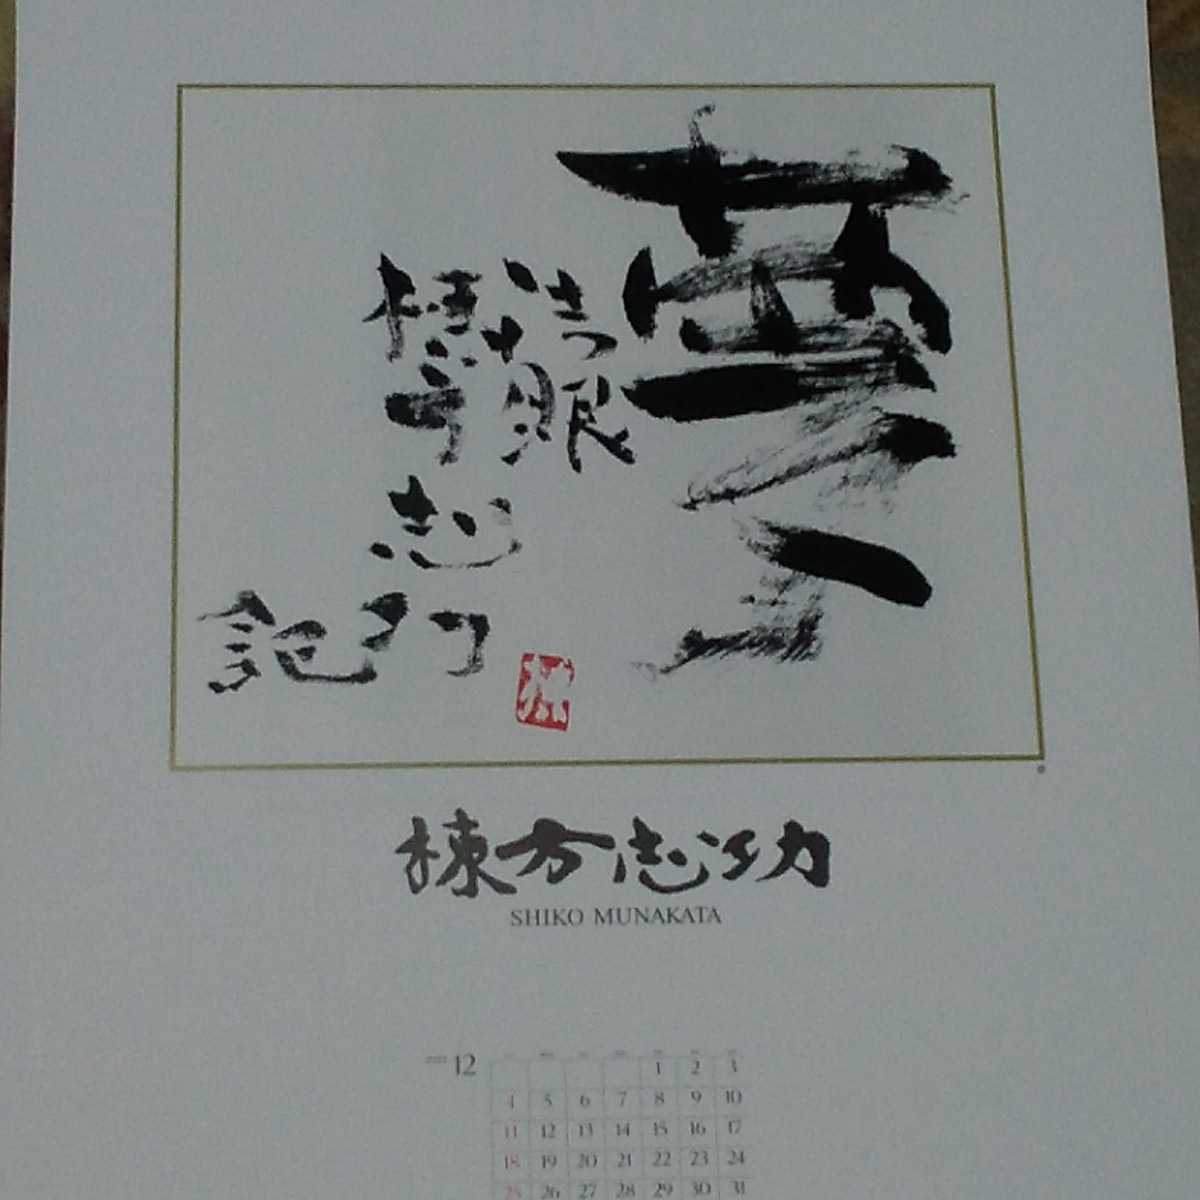 夢
法眼
志功
記
棟方志功
SHIKO MUNAKATA
12
1 2 3
4 5 6 7 8 9 10
11 12 13 14 15 16 17
18 19 20 21 22 23 24
25 26 27 28 29 30 31